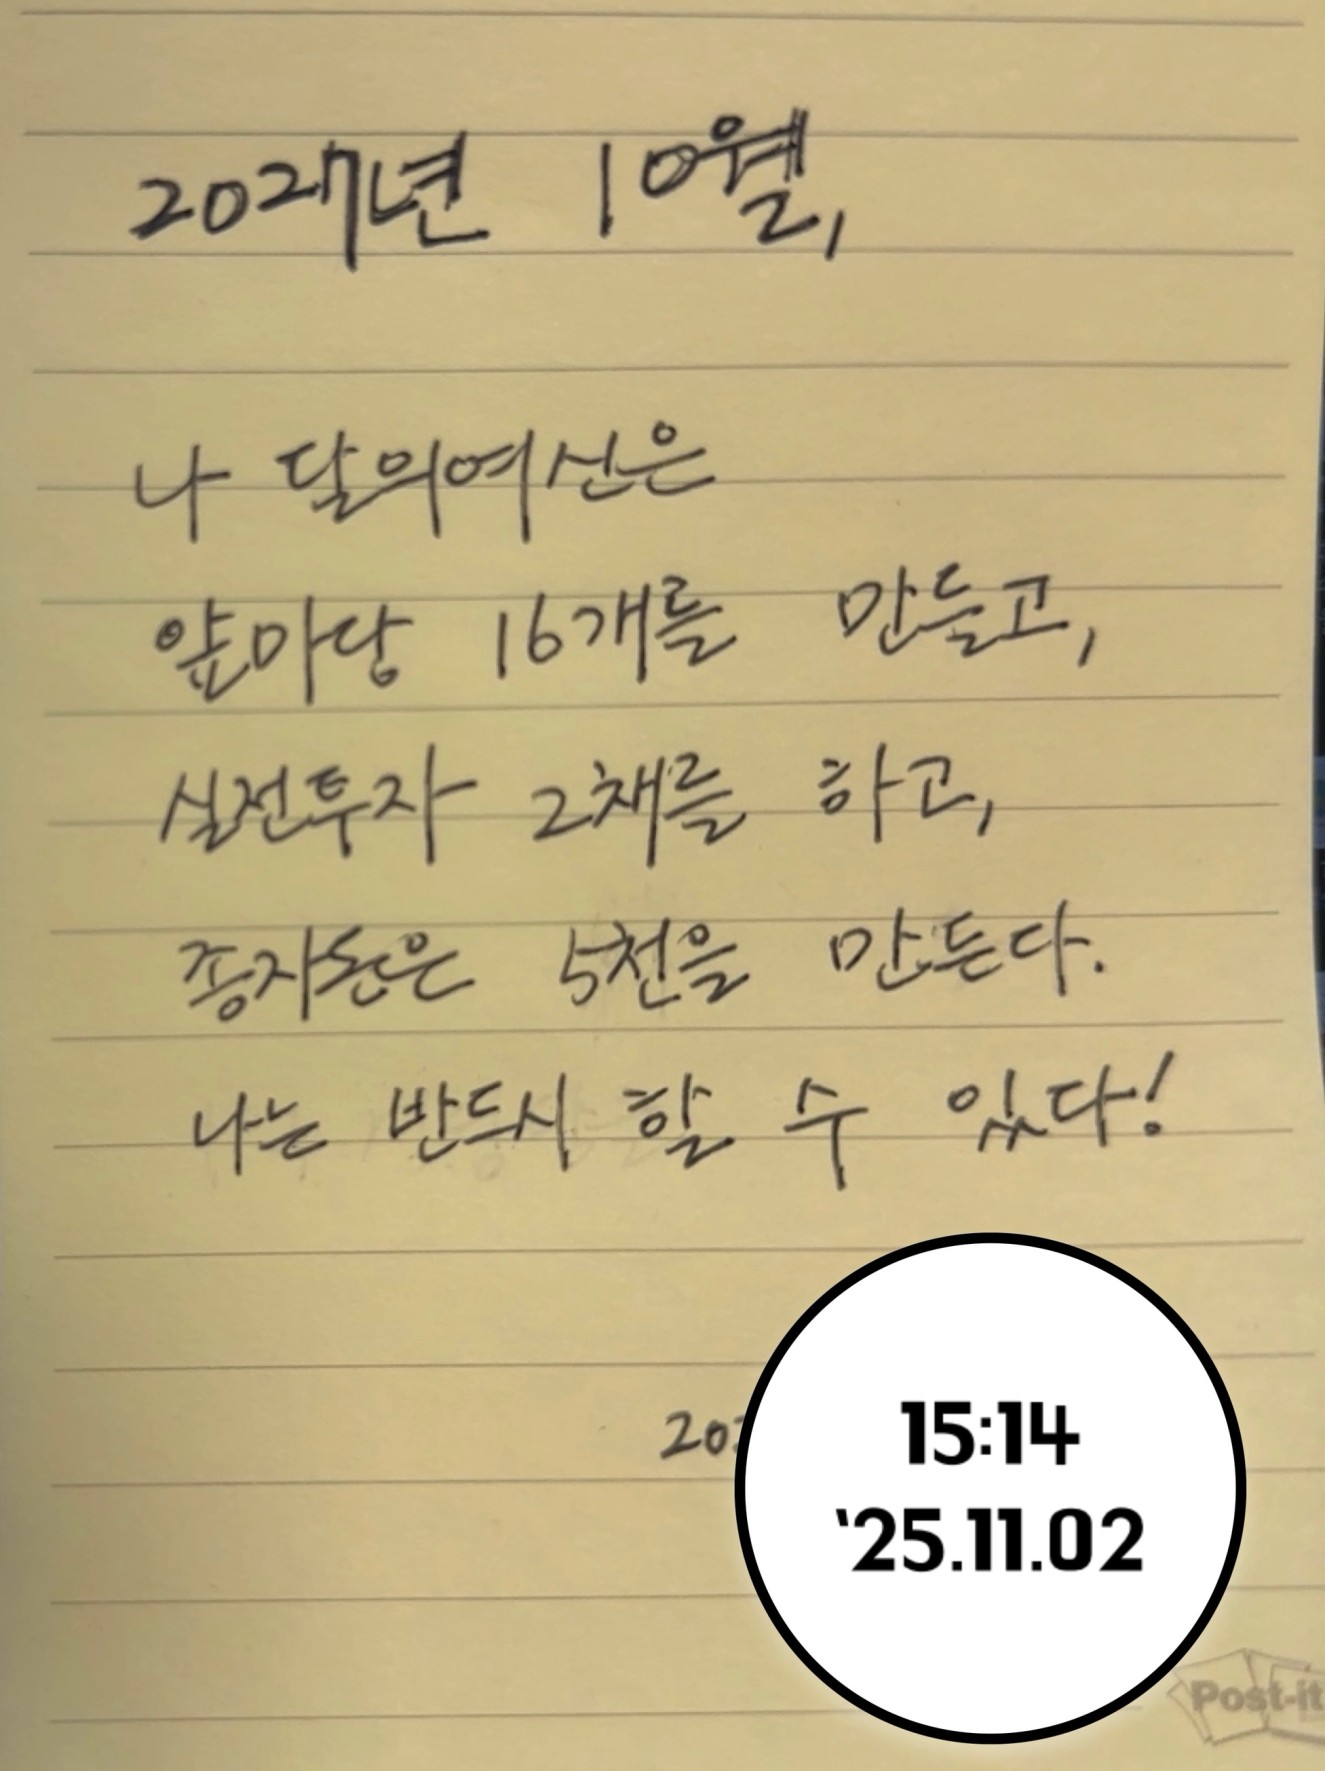 2027년 10월,
나 달의여신은
앞마당 16개를 만들고,
실전투자 2채를 하고,
종자돈은 5천을 만든다.
나는 반드시 할 수 있다!
15:14
'25.11.02
Post-it